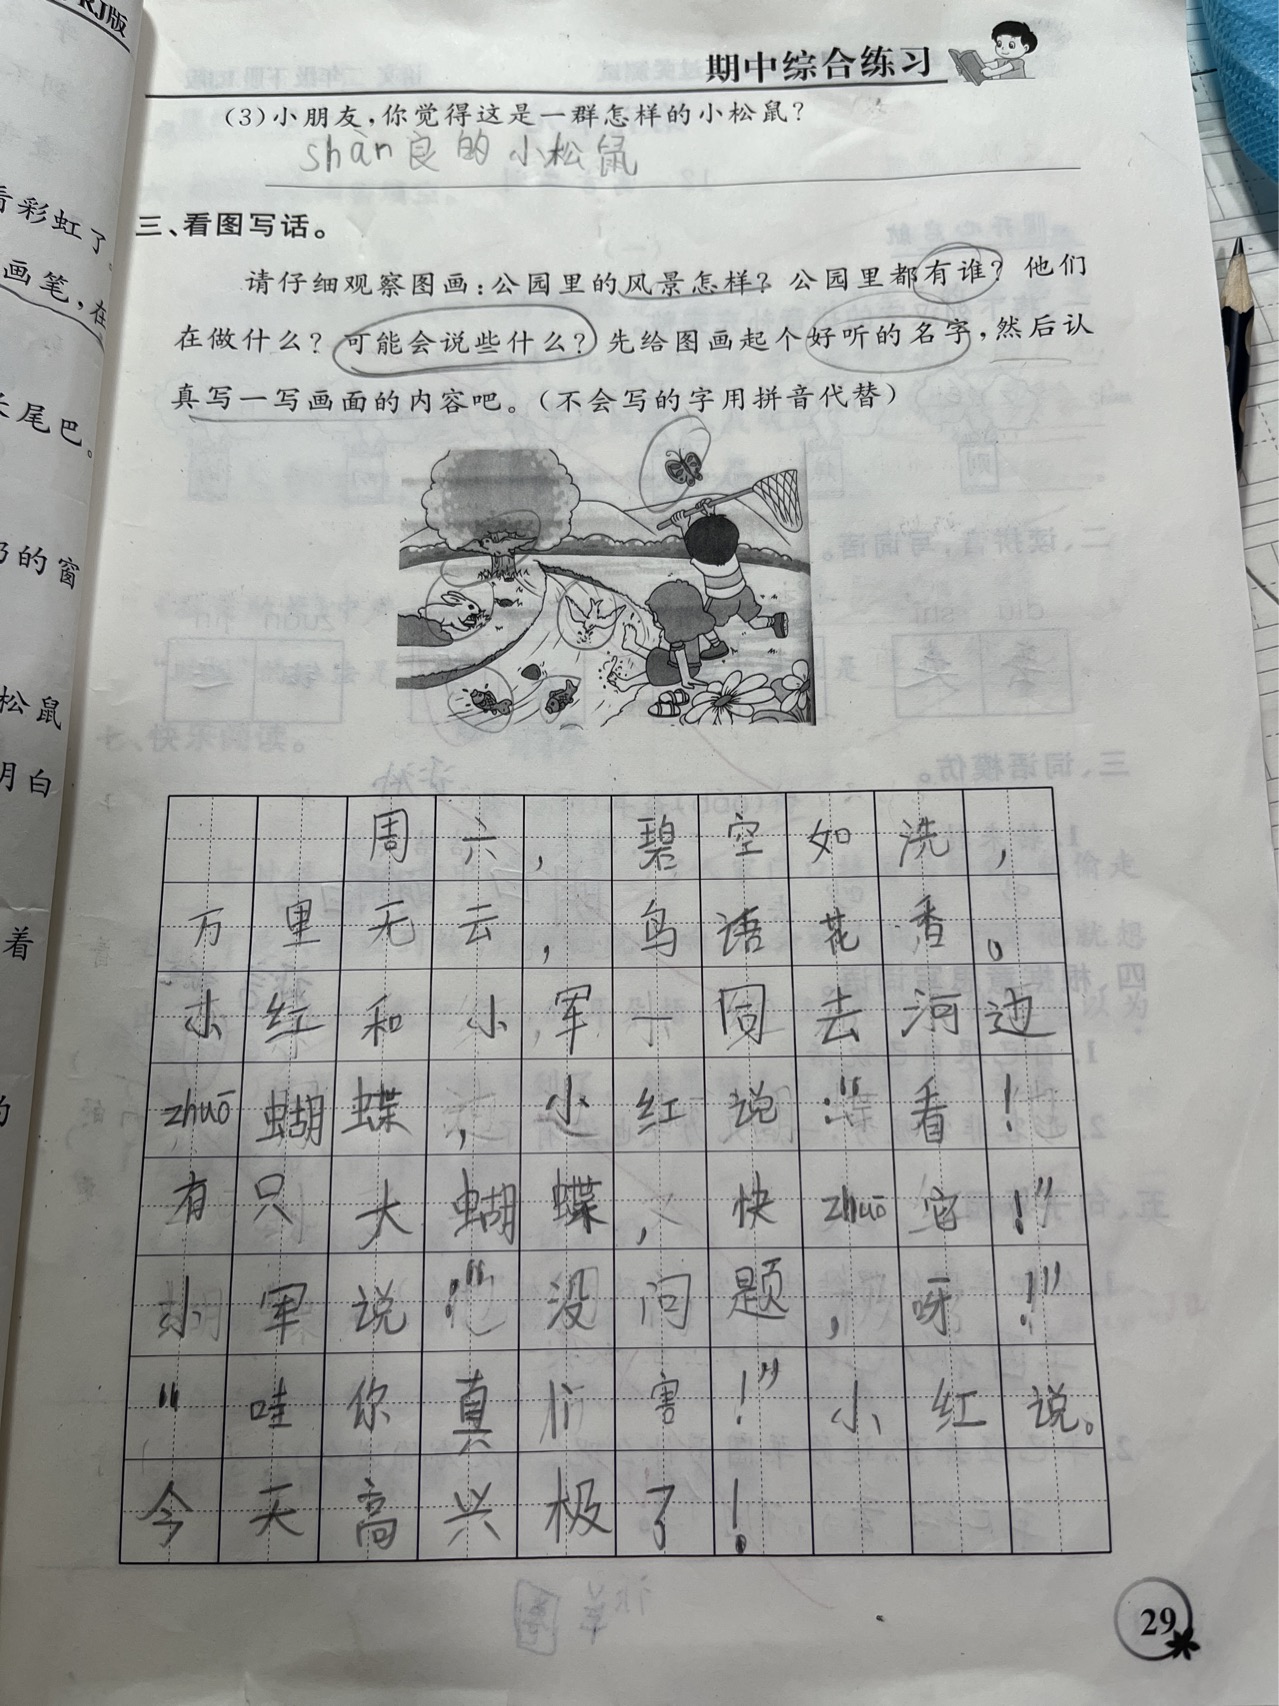 RJ版
期中综合练习
(3)小朋友,你觉得这是一群怎样的小松鼠?
shàn良的小松鼠
三、看图写话。
请仔细观察图画:公园里的风景怎样?公园里都有谁?他们
在做什么?可能会说些什么?先给图画起个好听的名字,然后认
真写一写画面的内容吧。(不会写的字用拼音代替)
周六,碧空如洗,
万里无云,鸟语花香。
小红和小军一同去河边
zhuō蝴蝶,小红说:“看!
有只大蝴蝶,快zhuō它!”
小军说:“没问题,呀!”
“哇你真厉害!”小红说。
今天高兴极了!
29
看彩虹了。
画笔,在
长尾巴。
奶的窗
松鼠
明白
着
的